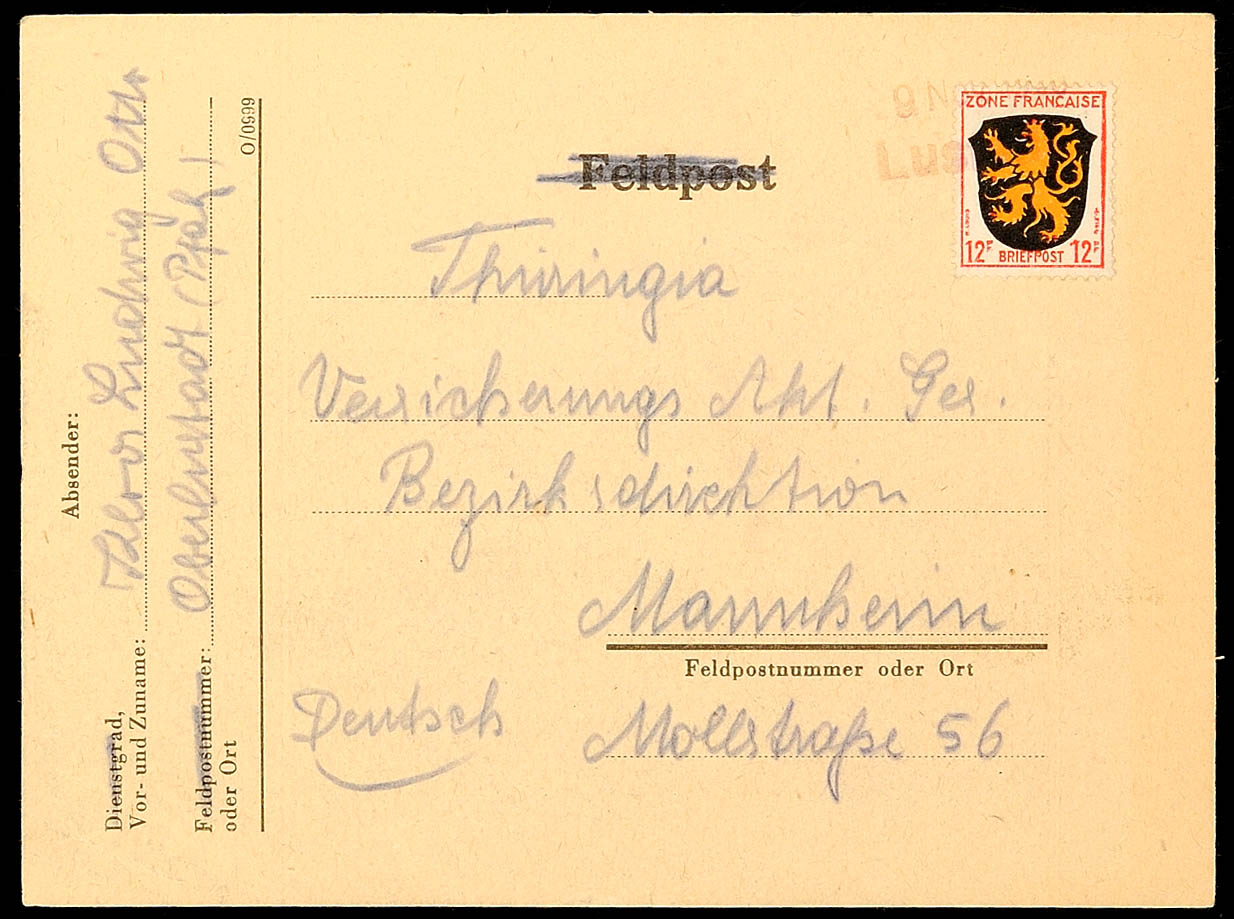 9 No
Lus
ZONE FRANÇAISE
12F BRIEFPOST 12F
Feldpost
Thuringia
Versicherungs Akt. Ges.
Bezirksdirektion
Mannheim
Feldpostnummer oder Ort
Mollstraße 56
Deutsch
Absender:
Dienstgrad,
Vor- und Zuname: Ludwig Otto
Feldpostnummer: Oberlustadt (Pfalz)
oder Ort
O/0599